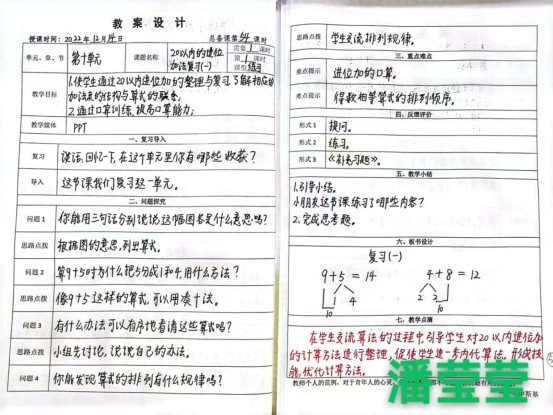 教 案 设 计
授课时间:2022年12月14日 总备课第54课时
单元、章、节 第十单元 课题名称 20以内的进位加法复习(一) 需要1课时 第1课时 课型练习
教学目标 1.使学生通过20以内进位加的整理与复习,了解相应的
加法表的结构与算式的联系;
2.通过口算训练,提高口算能力;
教学媒体 PPT
一、复习导入
复习 谈话,回忆一下,在这个单元里你有哪些收获?
导入 这节课我们复习这一单元。
二、问题探究
问题1 你能用三句话分别说说这幅图各是什么意思吗?
思路点拨 根据图的意思,列出算式。
问题2 算9+5时为什么把5分成1和4,用什么方法?
思路点拨 像9+5这样的算式,可以用凑十法。
问题3 有什么办法可以有序地看清这些算式吗?
思路点拨 小组先讨论,说说自己的办法。
问题4 你能发现算式的排列有什么规律吗?
思路点拨 学生交流排列规律。
三、重点难点
重点提示 进位加的口算。
难点提示 得数相等算式的排列顺序。
四、反馈评价
形式1 提问。
形式2 练习。
形式3 《补充习题》。
五、教学小结
1.引导小结。
小朋友这节课练习了哪些内容?
2.完成思考题。
六、板书设计
复习(一)
9+5=14 4+8=12
1 4 2 2
10 10
七、教学点滴
在学生交流算法的过程中引导学生对20以内进位加
的计算方法进行整理,促使学生进一步内化算法,形成技
能,优化计算方法。
教师个人的范例,对于青年人的心灵,
潘莹莹